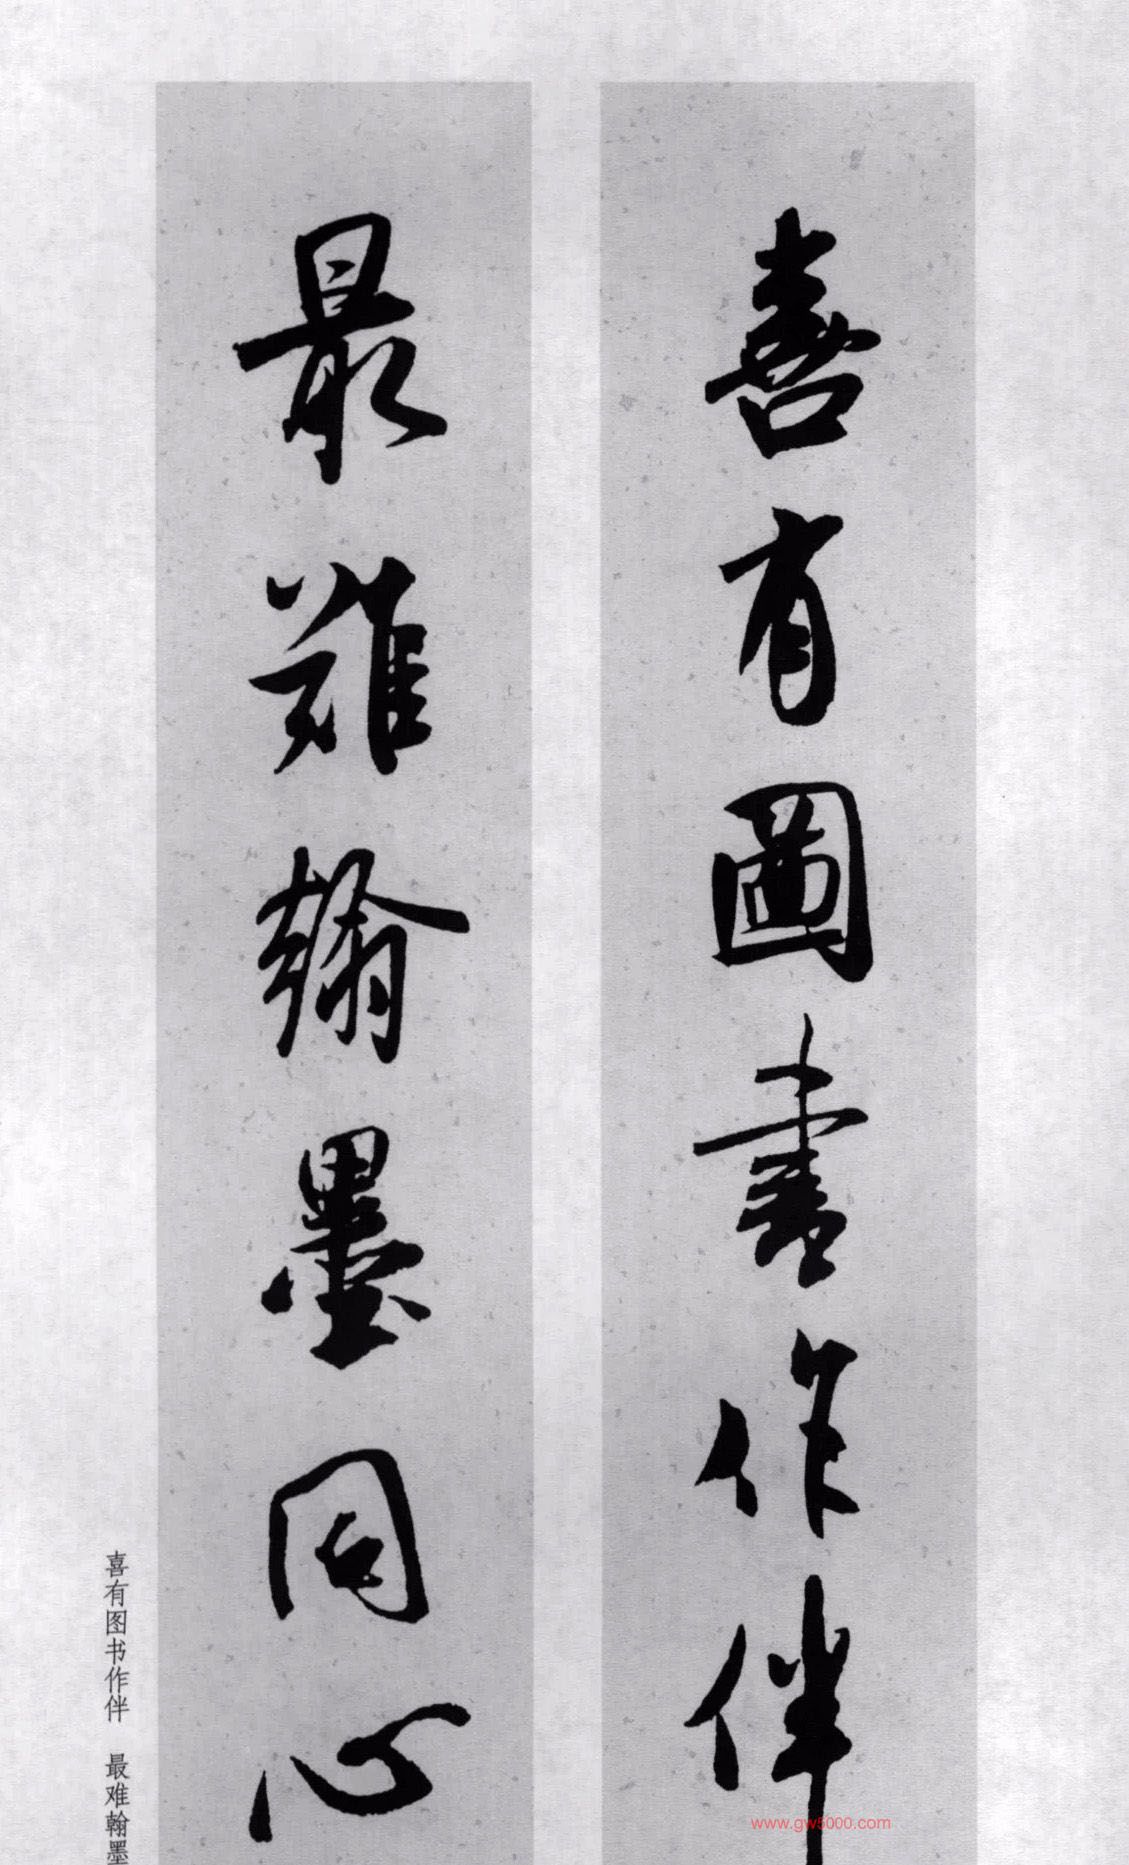 喜有圖書作伴
最難翰墨同心
喜有图书作伴 最难翰墨
www.gw5000.com